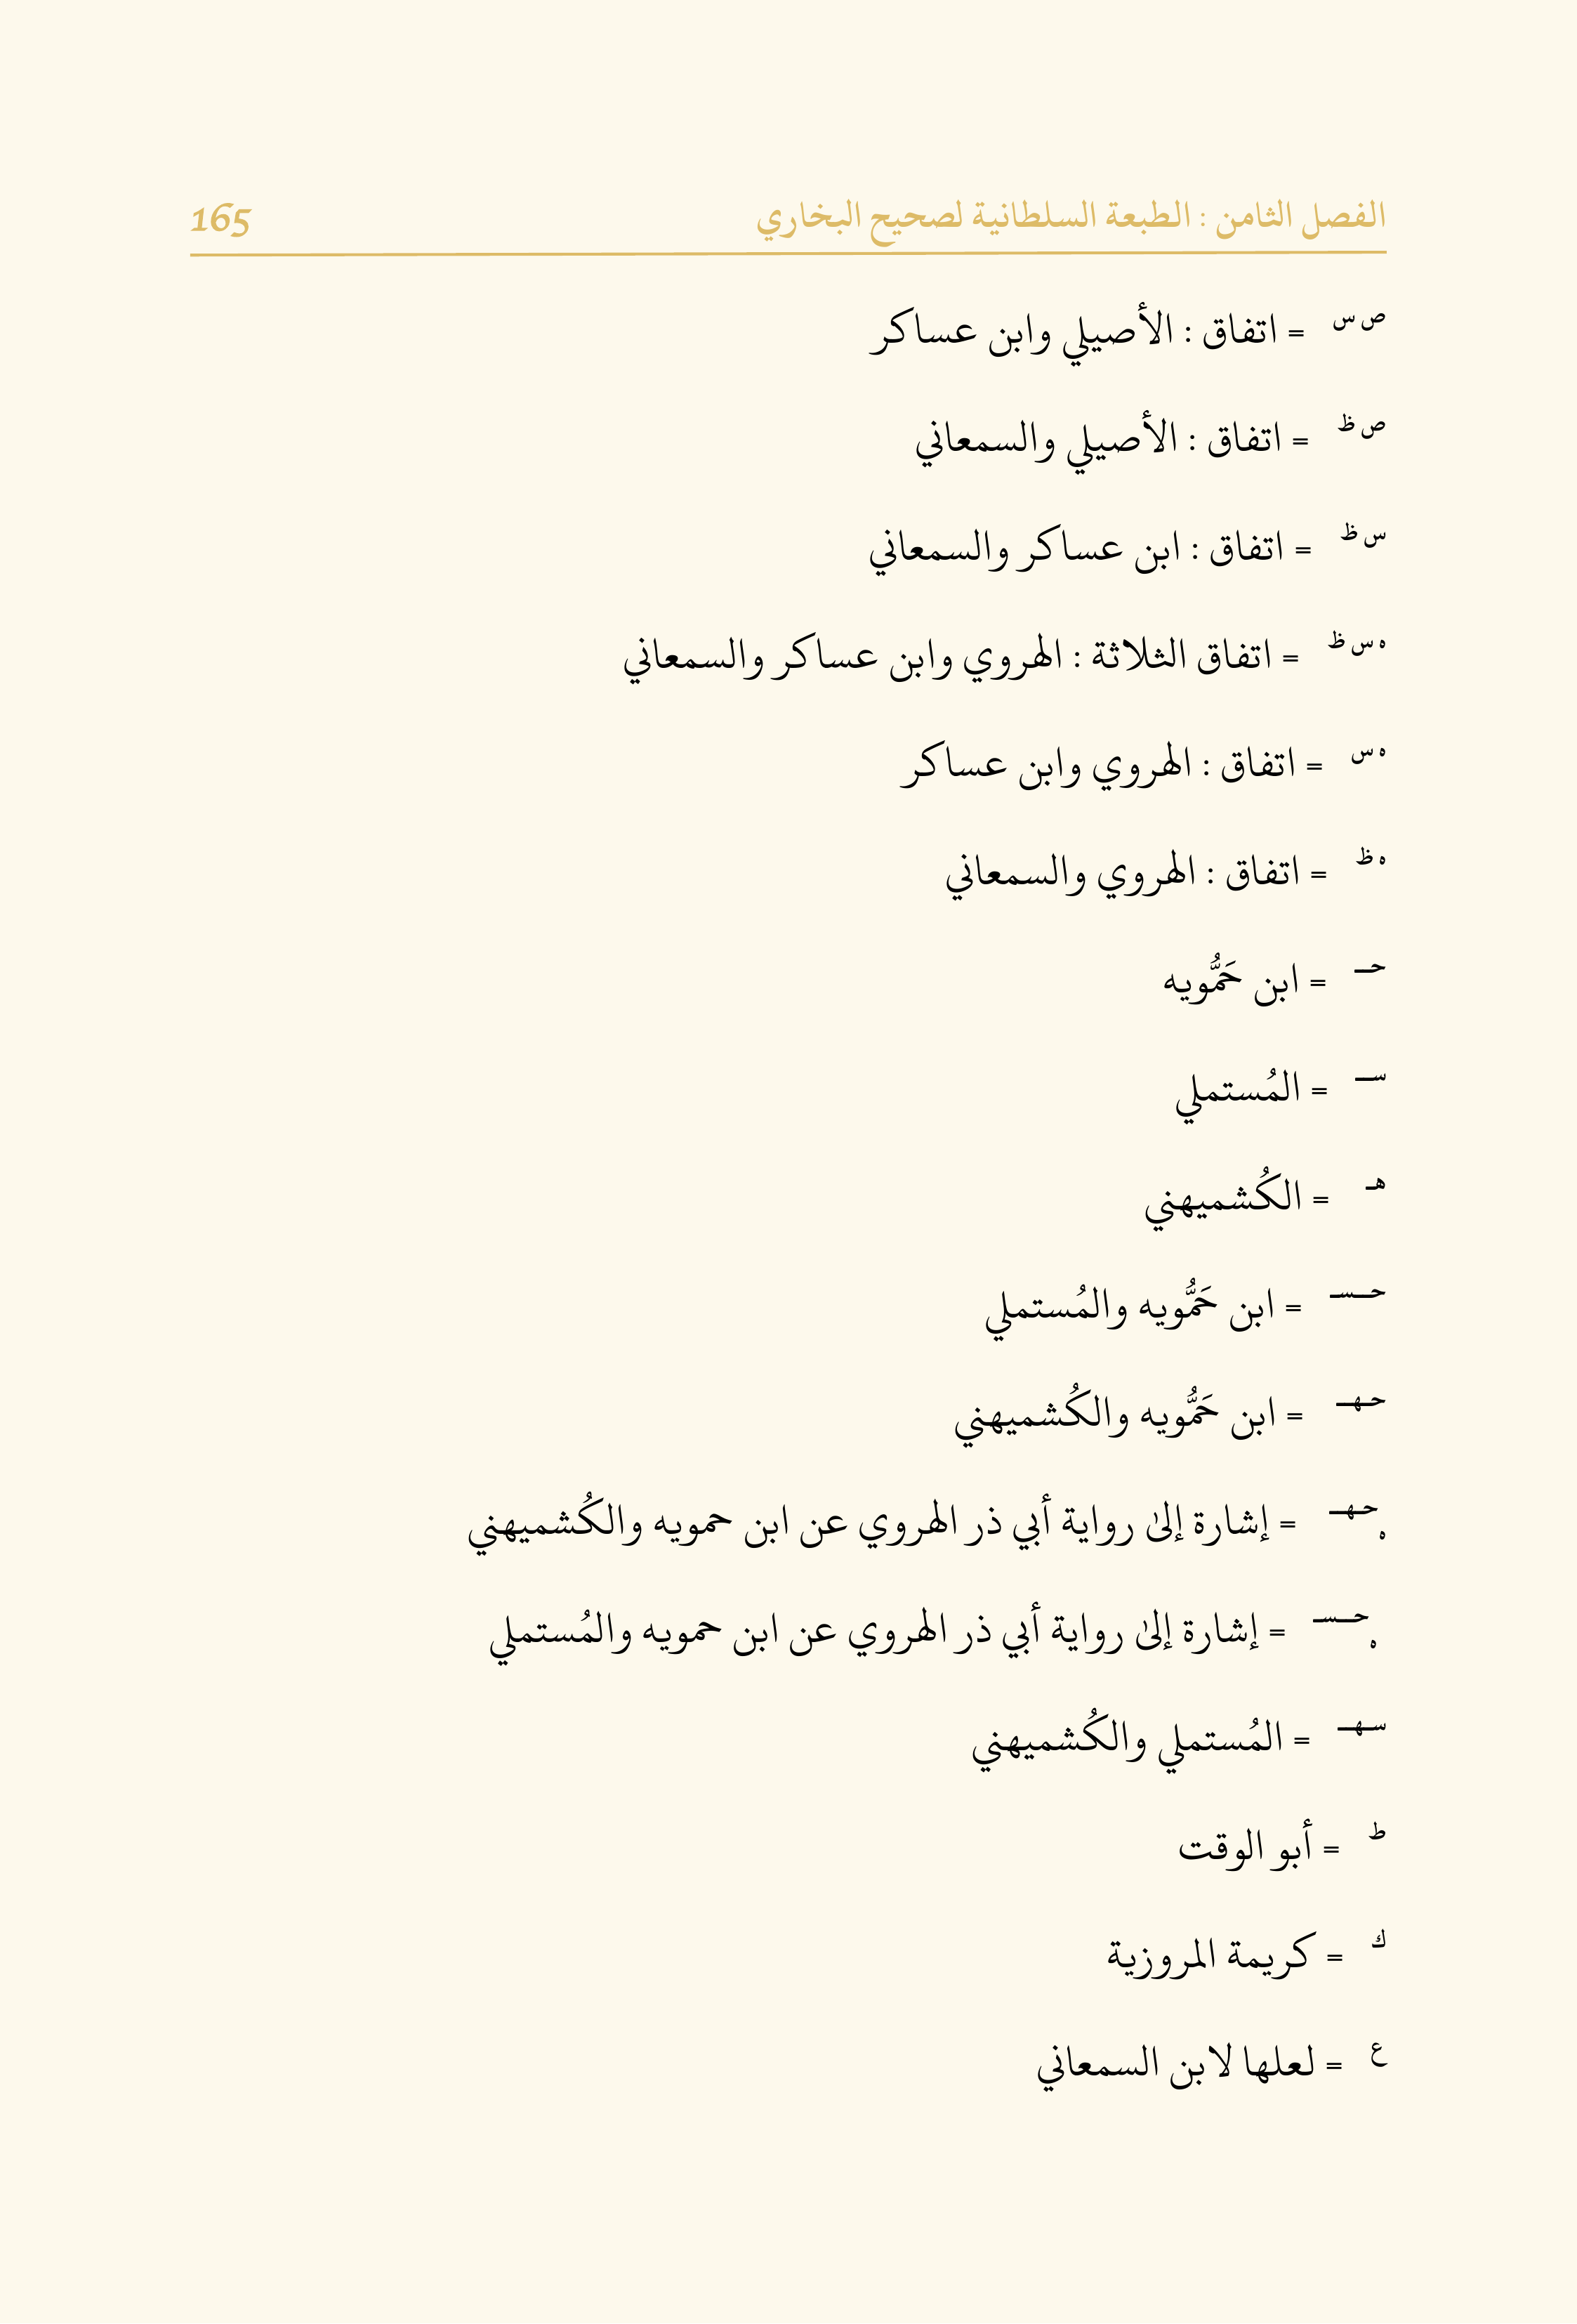 الفصل الثامن : الطبعة السلطانية لصحيح البخاري 165
ص س = اتفاق : الأصيلي وابن عساكر
ص ظ = اتفاق : الأصيلي والسمعاني
س ظ = اتفاق : ابن عساكر والسمعاني
ه س ظ = اتفاق الثلاثة : الهروي وابن عساكر والسمعاني
ه س = اتفاق : الهروي وابن عساكر
ه ظ = اتفاق : الهروي والسمعاني
حـ = ابن حَمُّويه
سـ = المُستملي
هـ = الكُشميهني
حـسـ = ابن حَمُّويه والمُستملي
حـهـ = ابن حَمُّويه والكُشميهني
ه حـهـ = إشارة إلىٰ رواية أبي ذر الهروي عن ابن حمويه والكُشميهني
ه حـسـ = إشارة إلىٰ رواية أبي ذر الهروي عن ابن حمويه والمُستملي
سـهـ = المُستملي والكُشميهني
ط = أبو الوقت
ك = كريمة المروزية
ع = لعلها لابن السمعاني